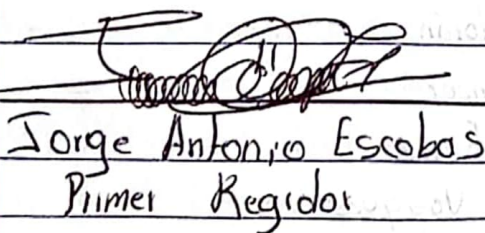 Jorge Antonio Escobas
Primer Regidor